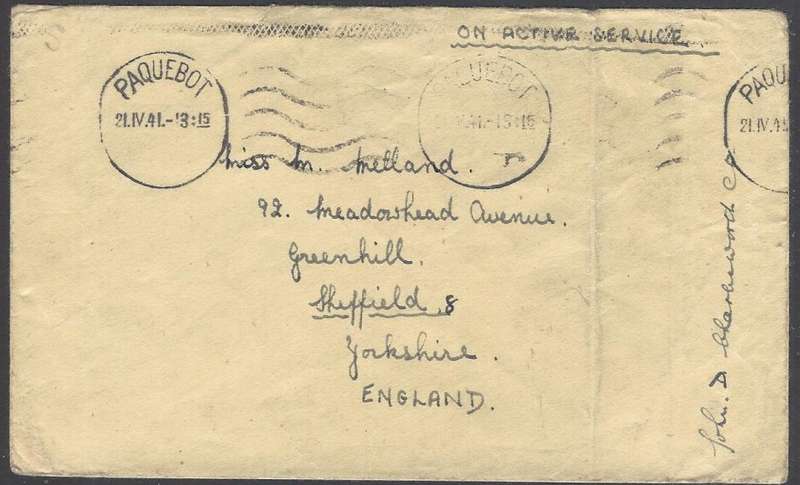 ON ACTIVE SERVICE
PAQUEBOT
21.IV.41.-13:15
PAQUEBOT
.41.-13:15
PAQU
21.IV.4
Miss M. Metland.
92. Meadowhead Avenue.
Greenhill.
Sheffield. 8
Yorkshire.
ENGLAND.
John. D. Charlesworth